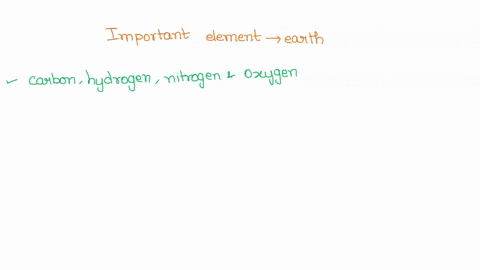 Important element → earth
✓ carbon, hydrogen, nitrogen & oxygen